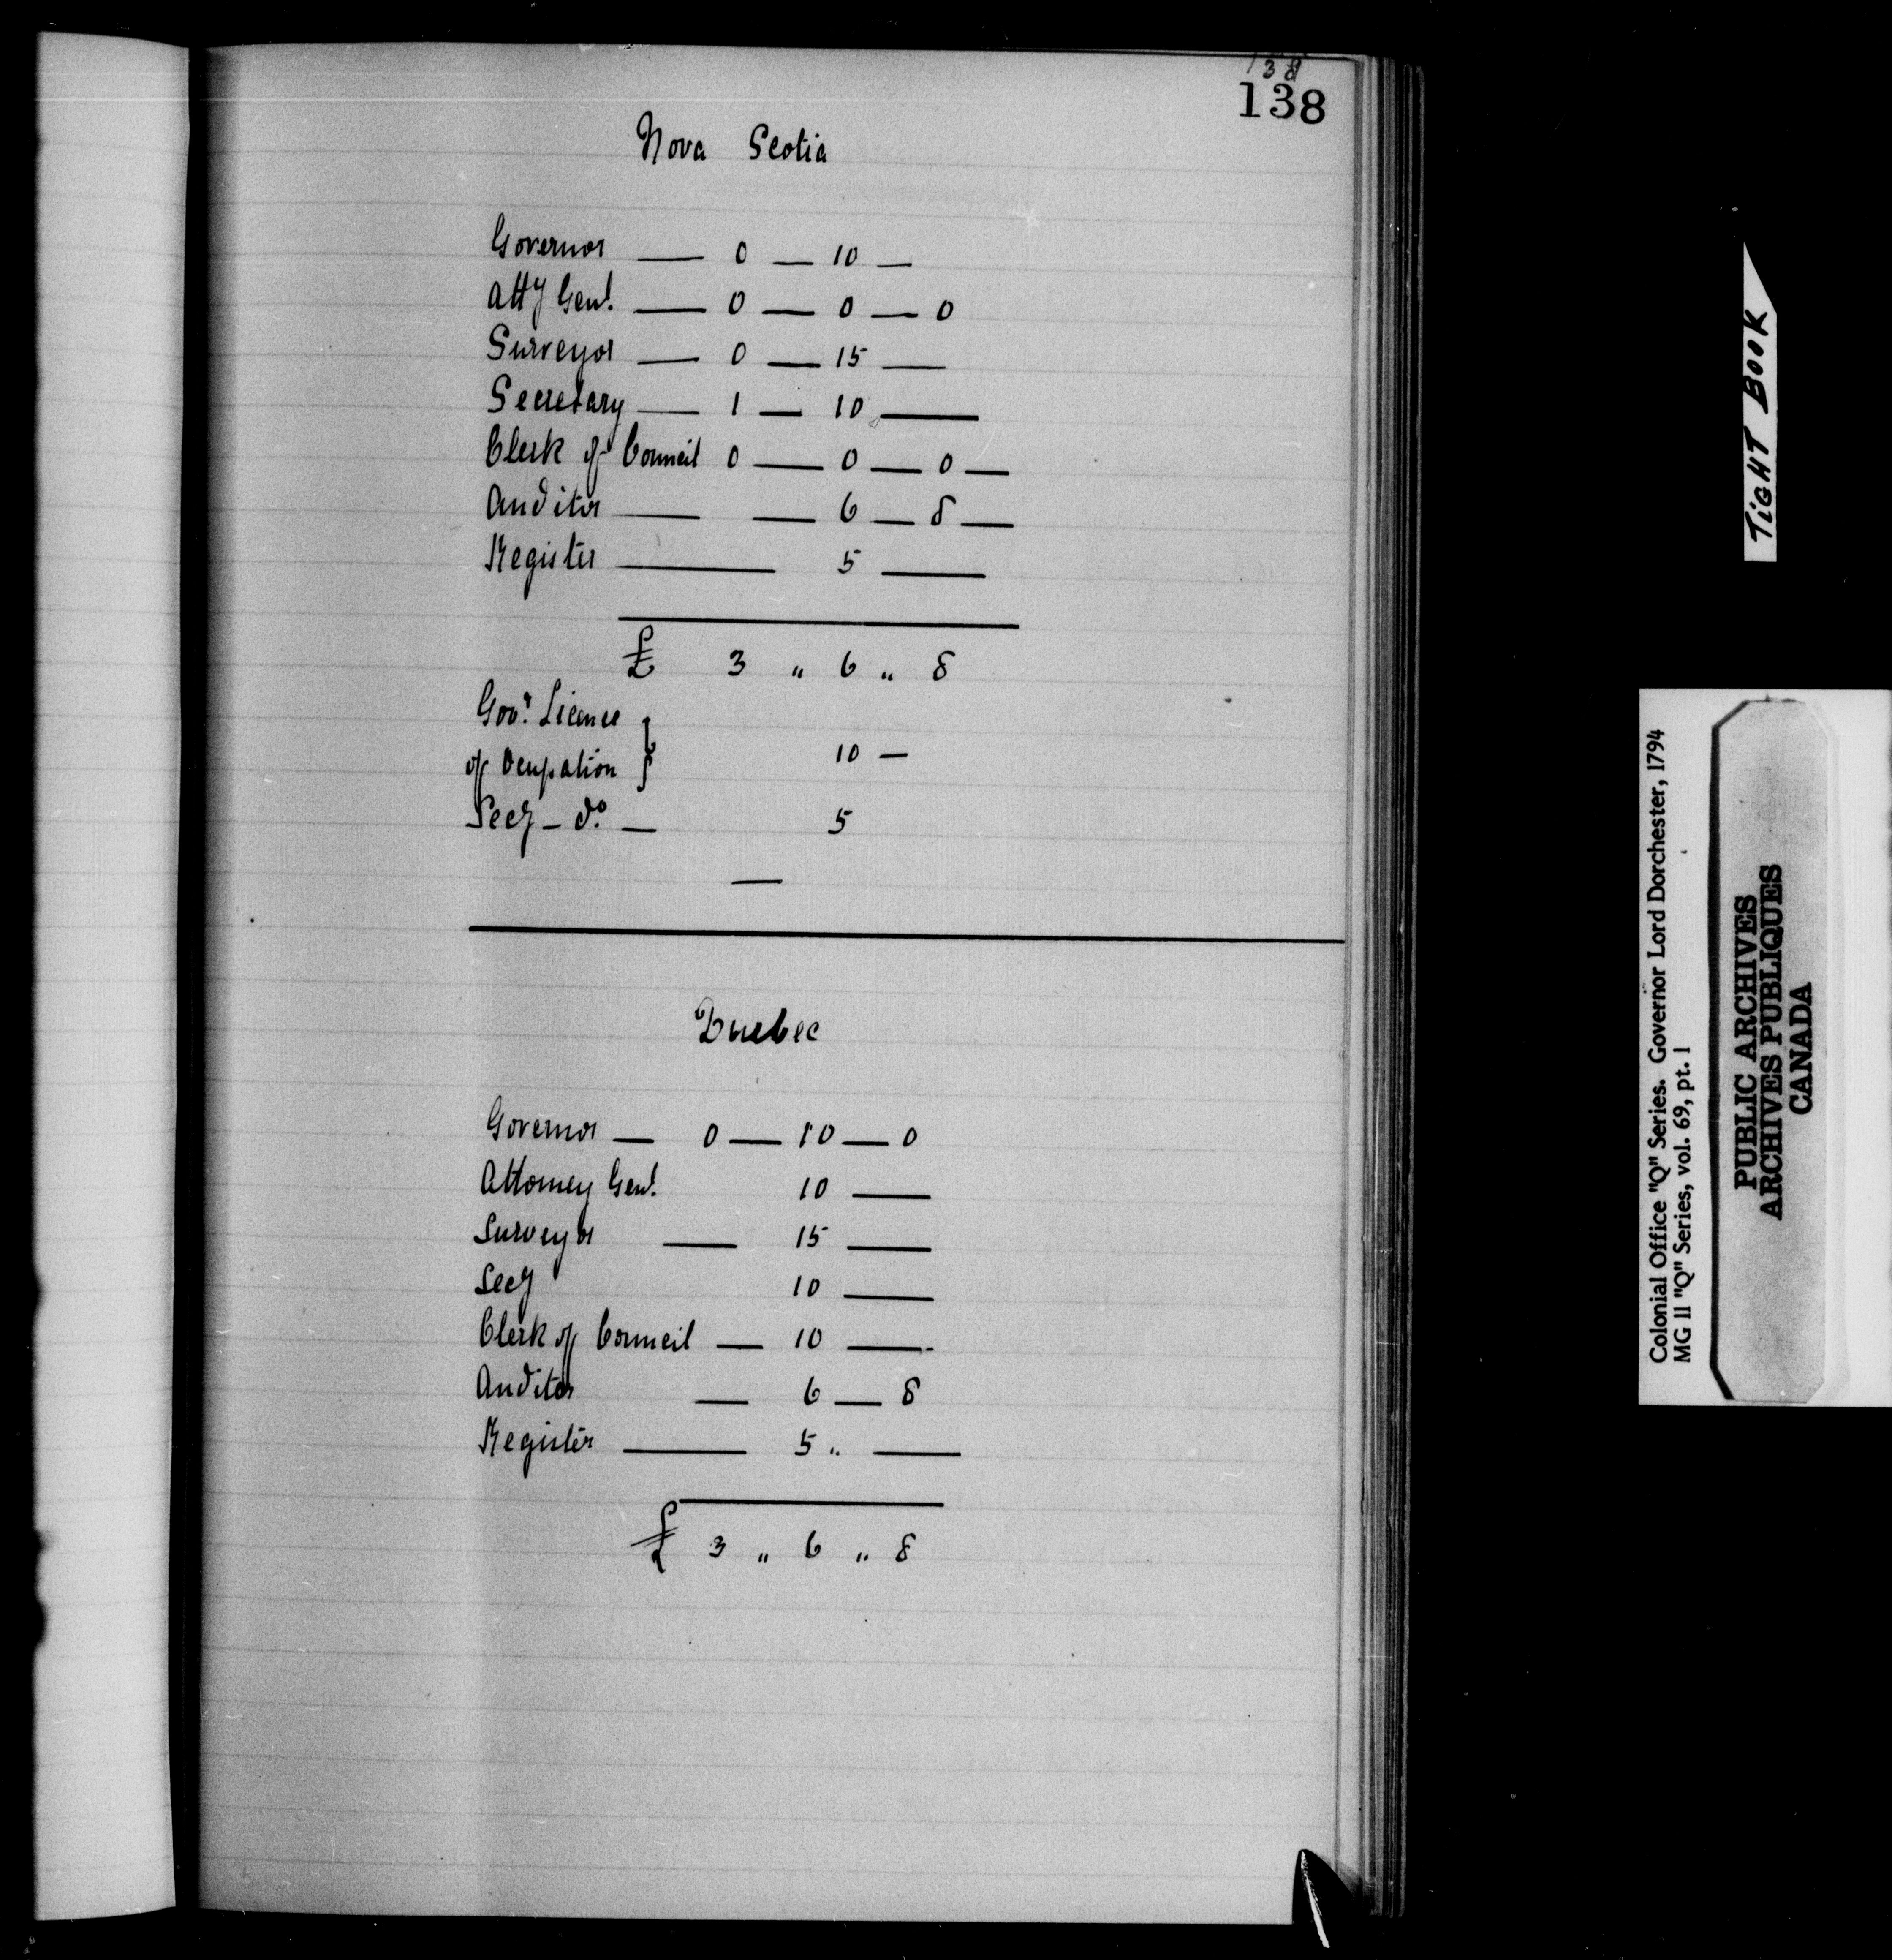 138
138
Nova Scotia
Governor — 0 — 10 —
Atty Genl. — 0 — 0 — 0
Surveyor — 0 — 15 —
Secretary — 1 — 10 —
Clerk of Council 0 — 0 — 0 —
Auditor — — 6 — 8 —
Register — 5 —
£ 3 " 6 " 8
Govr. Licence
of Ocupation } 10 —
Secy — do. — 5
—
Quebec
Governor — 0 — 10 — 0
Attorney Genl. 10 —
Surveyor — 15 —
Secy 10 —
Clerk of Council — 10 —
Auditor — 6 — 8
Register — 5 " —
£ 3 " 6 " 8
TIGHT BOOK
Colonial Office "Q" Series. Governor Lord Dorchester, 1794
MG 11 "Q" Series, vol. 69, pt. 1
PUBLIC ARCHIVES
ARCHIVES PUBLIQUES
CANADA